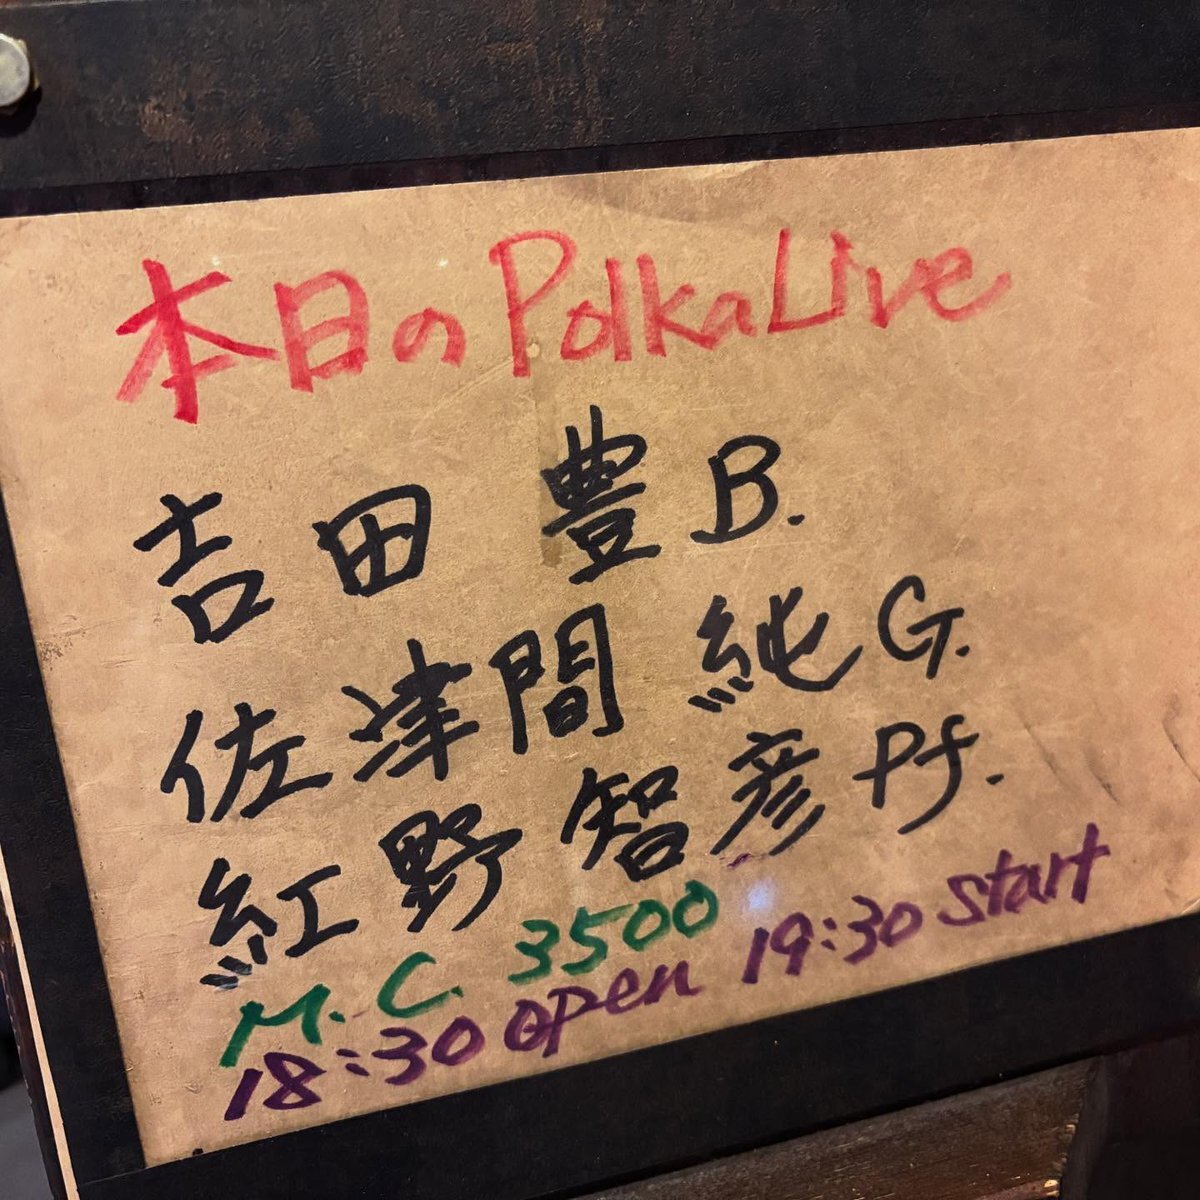 本日のPolkaLive
吉田 豊 B.
佐津間 純 G.
紅野 智彦 Pf.
M.C. 3500
18:30 open 19:30 start